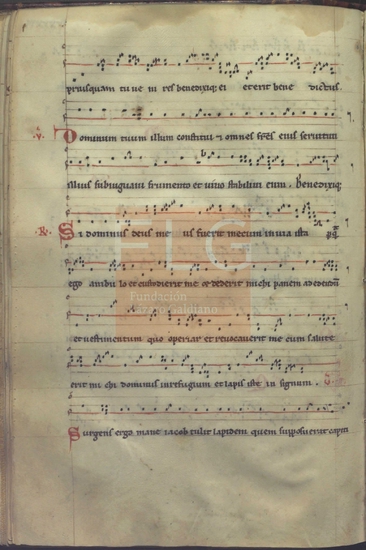 priusquam tu ve ni res benedixiq; ei et erit bene dictus
℣. Dominum tuum illum constitui & omnes fr̄es eius servituti
illius subiugavi frumento et vino stabilivi eum. Benedixiq;
℟. Si dominus deus me us fuerit mecum in via ista per quā
ego ambu lo et custodierit me et dederit michi panem ad edendū
et vestimentum quo operiar et revocaverit me cum salute
erit mi chi dominus in refugium et lapis iste in signum.
Surgens ergo mane iacob tulit lapidem quem supposuerat capiti
FLG
Fundación
Lázaro Galdiano